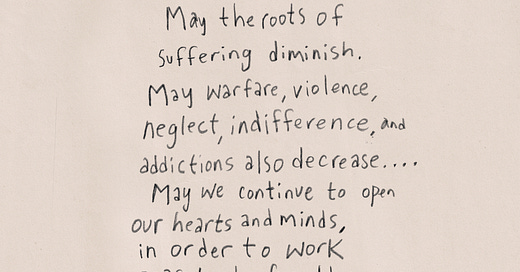 May the roots of
suffering diminish.
May warfare, violence,
neglect, indifference, and
addictions also decrease....
May we continue to open
our hearts and minds,
in order to work